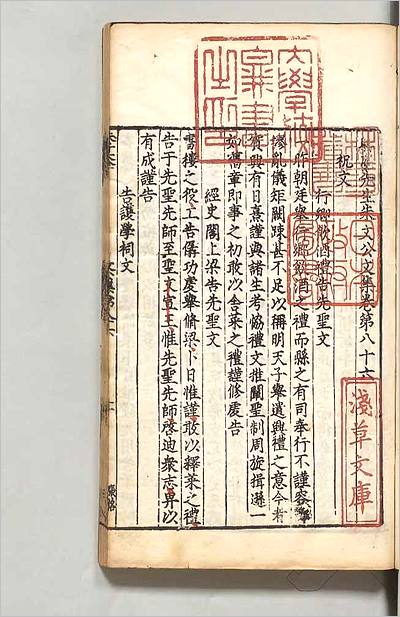 淺草文庫
大學校
圖書
之印
晦庵先生朱文公文集卷第八十六
祝文
行鄉飲酒禮告先聖文
昨朝廷舉行鄉飲酒之禮而縣之有司奉行不謹容節
謬亂儀矩闕疎甚不足以稱明天子舉遺興禮之意今者
賓興有日熹謹與諸生考恊禮文推闡聖制周旋揖遜一
如舊章即事之初敢以舍菜之禮謹修虔告
經史閣上梁告先聖文
書樓之役工告僝功虔舉脩梁卜日惟謹敢以釋菜之禮
告于先聖先師至聖文宣王惟先聖先師啓迪衆志畀以
有成謹告
告護學祠文